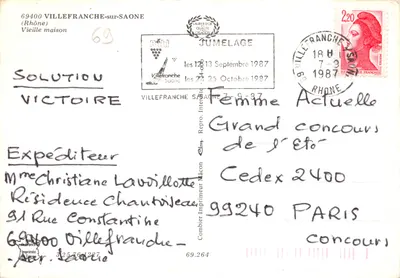 69400 VILLEFRANCHE-sur-SAONE
(Rhône)
Vieille maison
69
JUMELAGE
les 12 13 Septembre 1987
les Octobre 1987
Villefranche
VILLEFRANCHE S/SAONE 7-9-87
VILLEFRANCHE S/SAONE
18 H
7-9
1987
RHONE
2,20
SOLUTION
VICTOIRE
Expéditeur
Mme Christiane Lavillotte
Résidence Chantoiseau
91 Rue Constantine
69400 Villefranche-
sur-Saône
Femme Actuelle
Grand concours
de l'Eté
Cedex 2400
99240 PARIS
concours
Combier Imprimeur Macon
69.264